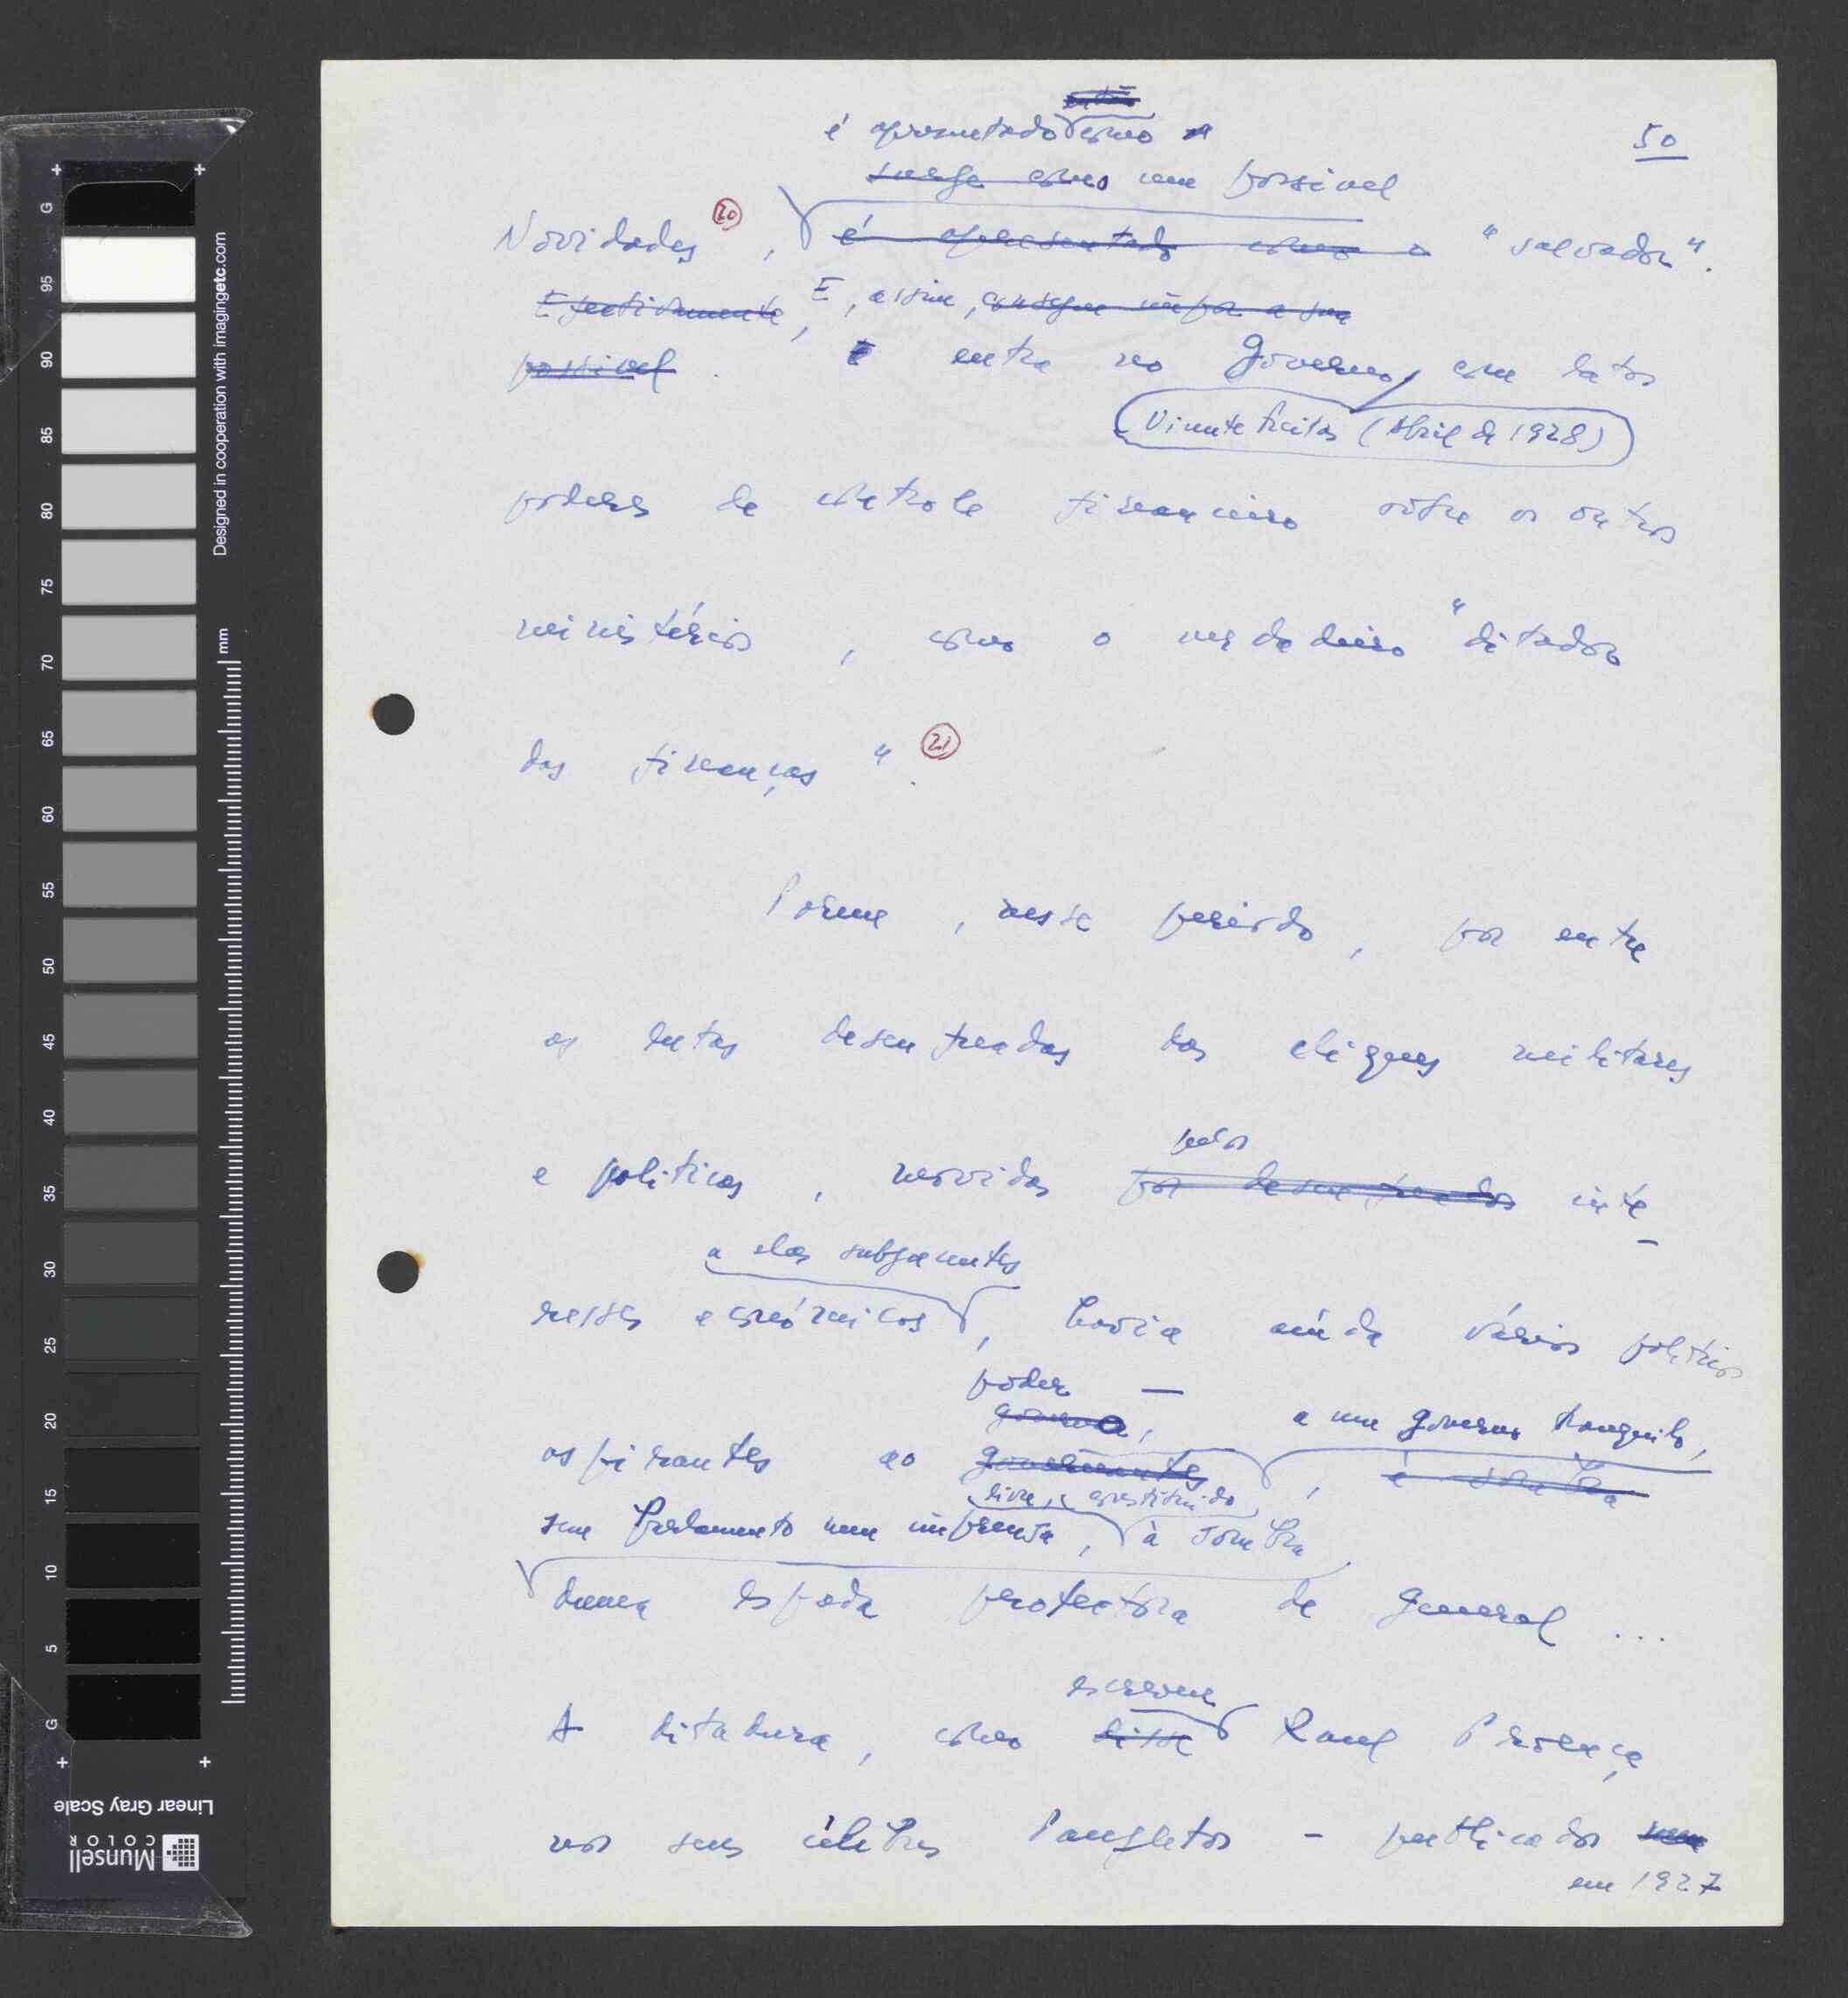 50
é apresentado como o
surge como um possível
Novidades (20), é apresentado como o "salvador".
Efectivamente, E, assim, consegue impor a sua
possível. E entra no Governo, com latos
Vicente Freitas (Abril de 1928)
poderes de controle financeiro sôbre os outros
ministérios, como o verdadeiro "ditador
das finanças". (21)
Porém, nesse período, por entre
as lutas desenfreadas das cliques militares
e políticas, movidas
pelos
por desenfreados inte-
a elas subjacentes
resses económicos, havia ainda vários políticos
poder —
governo, a um governo tranquilo,
aspirantes ao governantes, à sombra
livre, constituído
sem Parlamento nem imprensa, à sombra
duma espada protectora de general ...
escreveu
A ditadura, como disse Raul Proença,
nos seus célebres Panfletos - publicados
em 1927
Designed in cooperation with imagingetc.com
mm
G 95 90 85 80 75 70 65 60 55 50 45 40 35 30 25 20 15 10 5 G
Linear Gray Scale
Munsell
COLOR